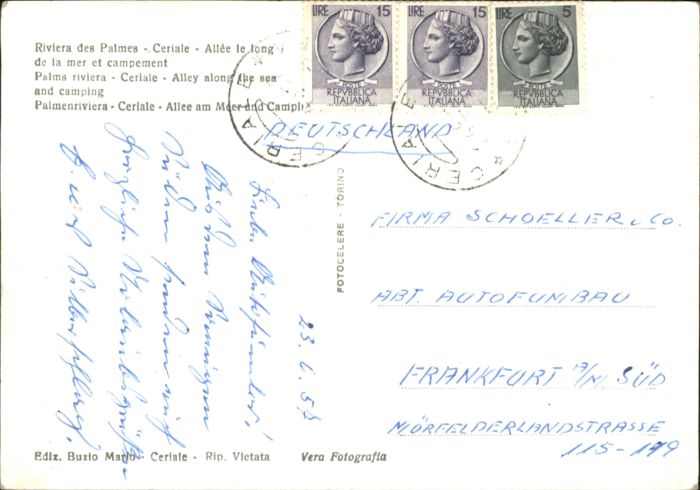 Riviera des Palmes - Ceriale - Allée le long
de la mer et campement
Palms riviera - Ceriale - Alley along the sea
and camping
Palmenriviera - Ceriale - Allee am Meer und Campi
LIRE 15
POSTE
REPVBBLICA
ITALIANA
LIRE 15
POSTE
REPVBBLICA
ITALIANA
LIRE 5
POSTE
REPVBBLICA
ITALIANA
CERIALE
CERIALE
DEUTSCHLAND
FIRMA SCHOELLER u Co.
ABT. AUTOFUNBAU
FRANKFURT a/M. SÜD
MÖRFELDERLANDSTRASSE
115-179
23.6.57
Liebe
Aus dem sonnigen
Süden senden wir
herzliche Urlaubsgrüße
FOTOCELERE - TORINO
Ediz. Buzio Mario - Ceriale - Rip. Vietata
Vera Fotografia